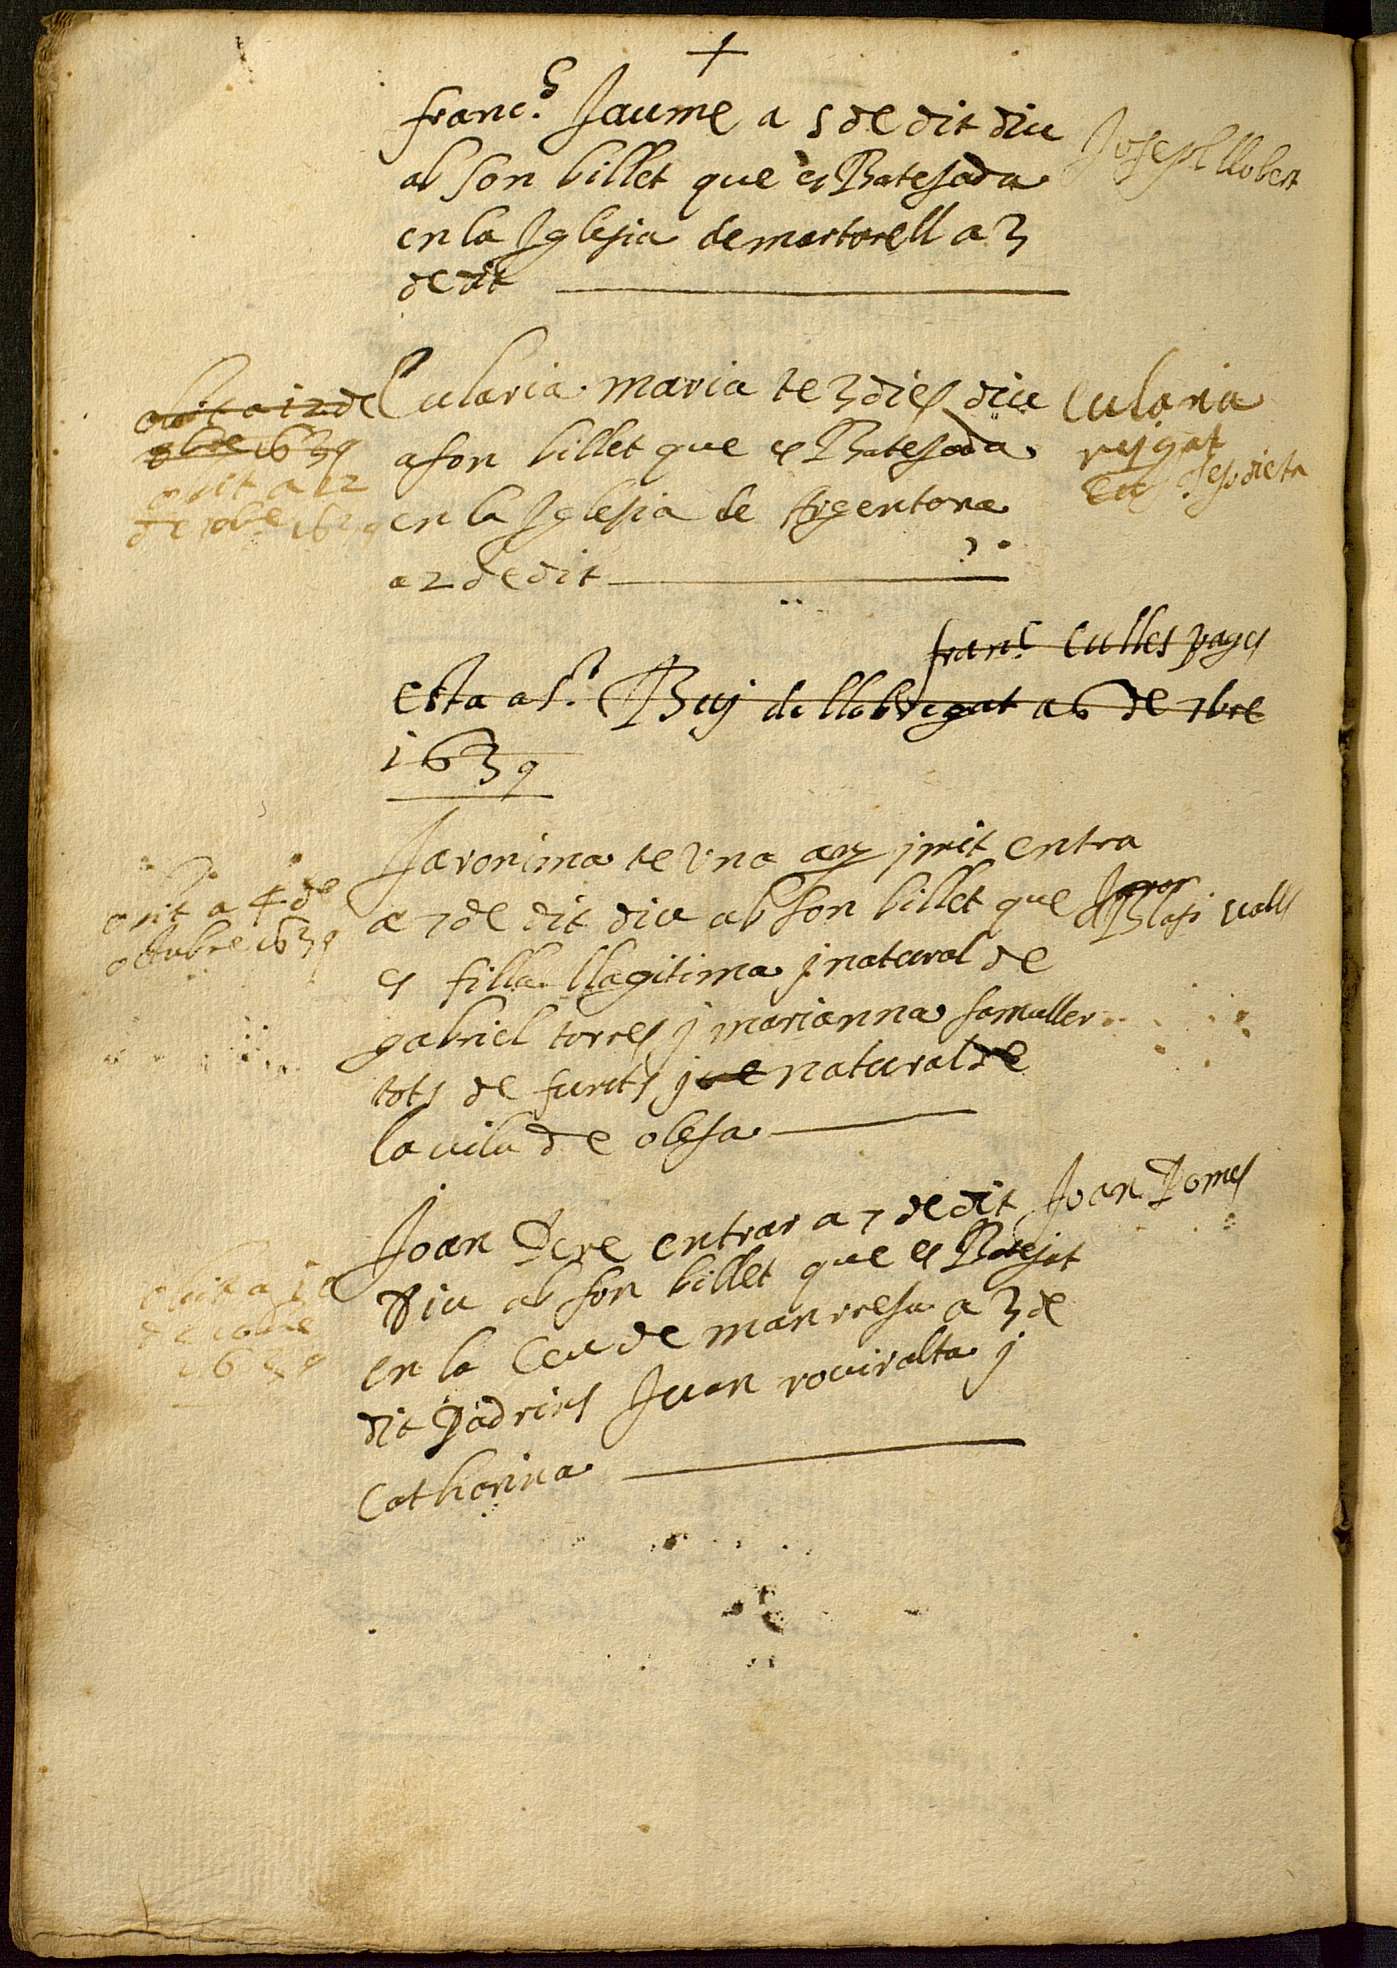 +
franc.s Jaume a 5 de dit diu
ab son billet que es Batejada
en la Iglesia de martorell a 3
de dit
Joseph llobert
obit a 12 de
obre 1639
obit a 12
de obre 1639
Eularia maria te 3 dies diu
a son billet que es Batejada
en la Iglesia de Argentona
a 2 de dit
Eularia
esta a St. Buj de llobregat a 6 de 7bre
franc. Culles pages
1639
obit a 4 de
octubre 1639
Jaronima te una any j mit entra
a 7 de dit diu ab son billet que
es filla llagitima j natural de
gabriel torres j marianna sa muller
tots de j natural de
la vila de olesa
Blasi valls
obit a
1639
Joan Pere entrar a 7 de dit
diu ab son billet que es Batejat
en la Ceu de manresa a 3 de
dit Padrins Juan roviralta j
Catharina
Joan Pomes